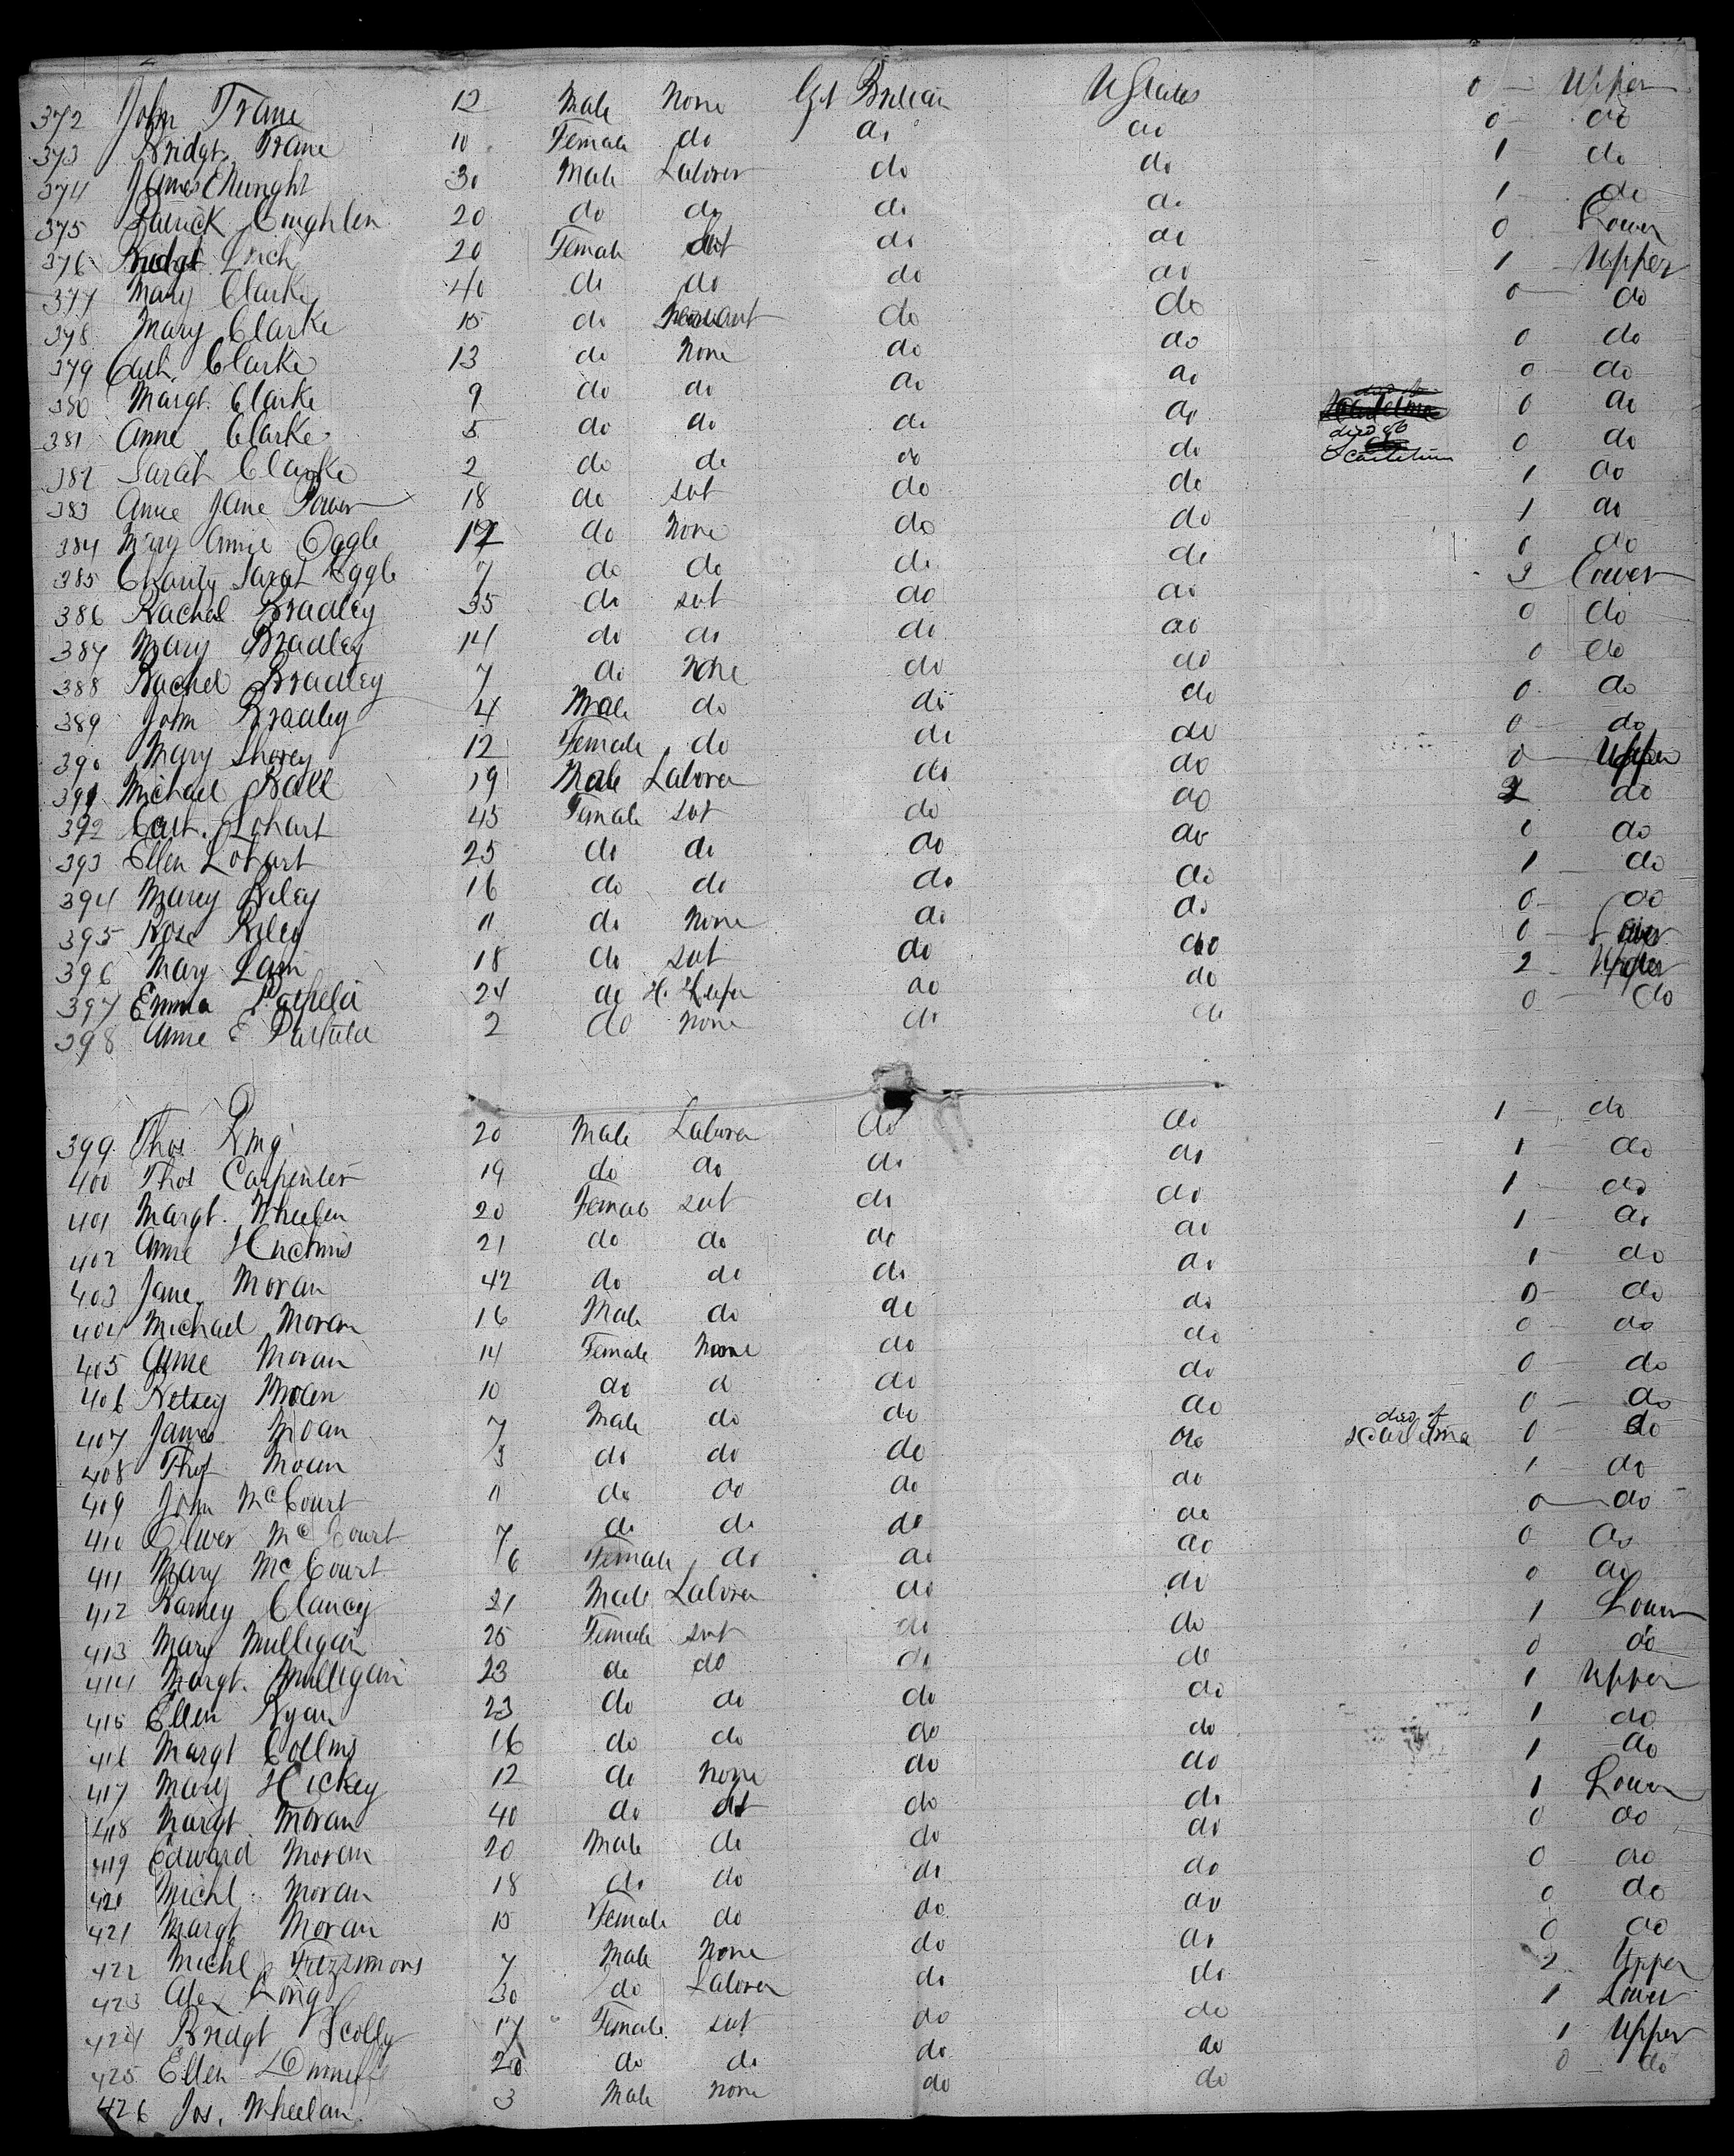 372 John Trane 12 Male None Gt Britain U States 0 Upper
373 Bridgt. Trane 10 Female do do do 0 do
374 James 30 Male Laborer do do 1 do
375 Patrick Coughlen 20 do do do do 1 do
376 Bridgt 20 Female Svt do do 0 Lower
377 Mary Clarke 40 do do do do 1 Upper
378 Mary Clarke 15 do Servant do do 0 do
379 Cath. Clarke 13 do None do do 0 do
380 Margt. Clarke 9 do do do do 0 do
381 Anne Clarke 5 do do do do 0 do
382 Sarah Clarke 2 do do do do died of Scarletina 0 do
383 Anne Jane Power 18 do svt do do 1 do
384 Mary Annie Oggle 12 do None do do 1 do
385 Charity Sarah Oggle 7 do do do do 0 do
386 Rachel Bradley 35 do svt do do 3 Lower
387 Mary Bradley 14 do do do do 0 do
388 Rachel Bradley 7 do None do do 0 do
389 John Bradley 4 Male do do do 0 do
390 Mary 12 Female do do do 0 do
391 Michael Ball 19 Male Laborer do do 0 Upper
392 Cath. Lohart 45 Female svt do do 2 do
393 Ellen Lohart 25 do do do do 0 do
394 Mary Riley 16 do do do do 1 do
395 Rose Riley 11 do None do do 0 do
396 Mary 18 do svt do do 0 Lower
397 Emma 24 do H. Keeper do do 2 Upper
398 Anne E 2 do None do do 0 do
399 Thos King 20 Male Laborer do do 1 do
400 Thos Carpenter 19 do do do do 1 do
401 Margt. Wheelen 20 Female svt do do 1 do
402 Anne 21 do do do do 1 do
403 Jane Moran 42 do do do do 1 do
404 Michael Moran 16 Male do do do 0 do
405 Anne Moran 14 Female None do do 0 do
406 Betsey Moran 10 do do do do 0 do
407 James Moran 7 Male do do do 0 do
408 Thos Moran 3 do do do do died of scarletina 0 do
409 John McCourt 11 do do do do 1 do
410 Oliver McCourt 7 do do do do 0 do
411 Mary McCourt 6 Female do do do 0 do
412 Barney Clancy 21 Male Laborer do do 0 do
413 Mary Mulligan 25 Female svt do do 1 Lower
414 Margt. Mulligan 23 do do do do 0 do
415 Ellen Ryan 23 do do do do 1 Upper
416 Margt Collins 16 do do do do 1 do
417 Mary Hickey 12 do None do do 1 do
418 Margt Moran 40 do svt do do 1 Lower
419 Edward Moran 20 Male do do do 0 do
420 Michl. Moran 18 do do do do 0 do
421 Margt Moran 15 Female do do do 0 do
422 Michl Fitzsimons 7 Male None do do 0 do
423 Alex Long 30 do Laborer do do 2 Upper
424 Bridgt Scolly 17 Female svt do do 1 Lower
425 Ellen 20 do do do do 1 Upper
426 Jos. Wheelan 3 Male None do do 0 do